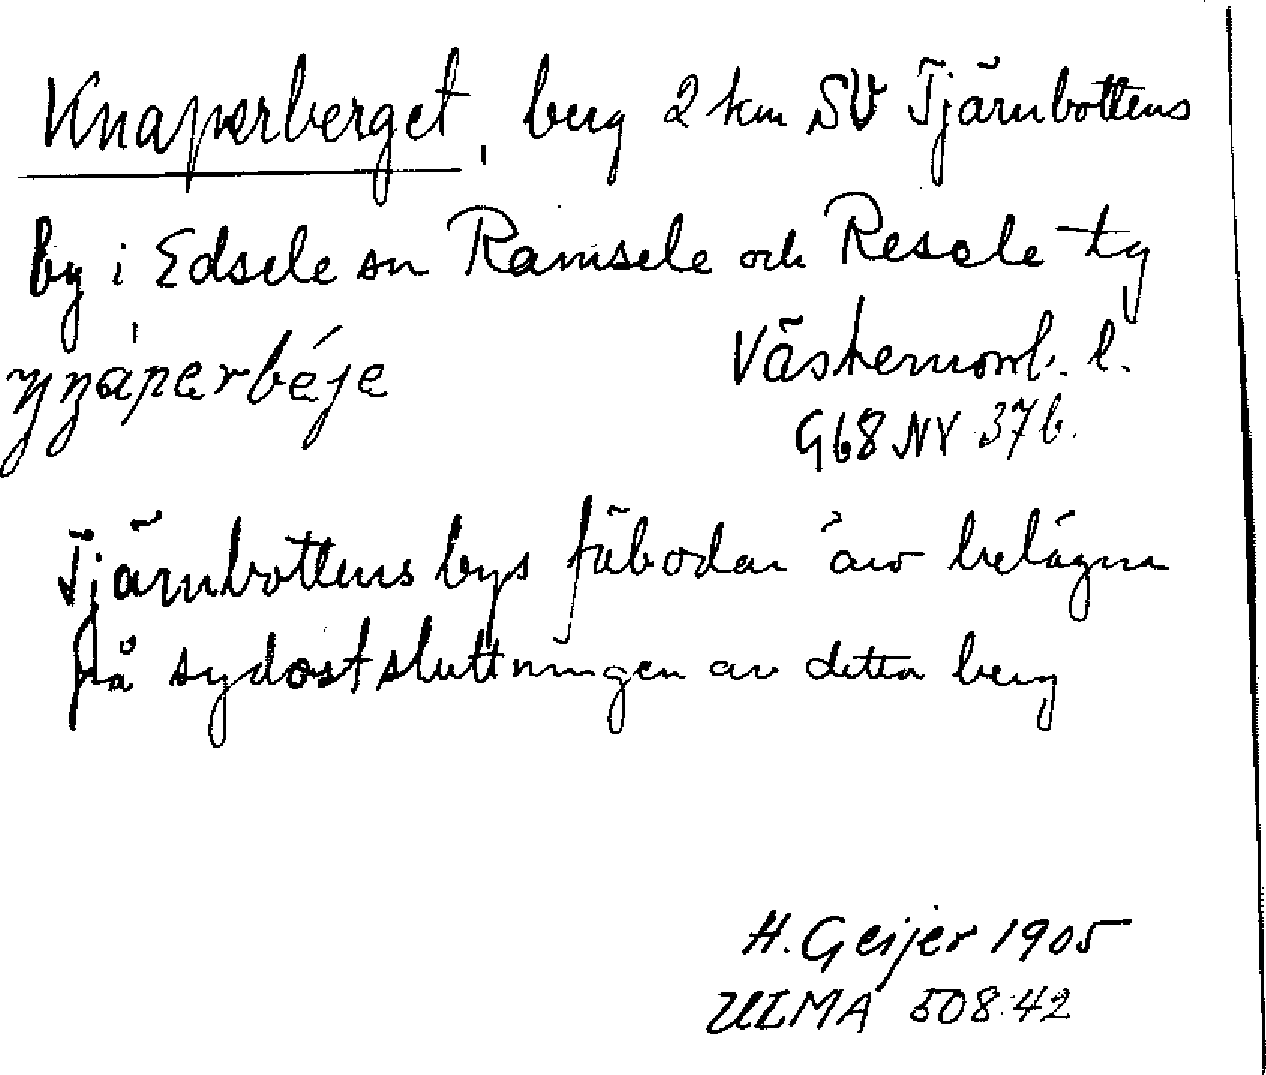 Knaperberget, berg 2 km SV Tjärnbottens
by i Edsele sn Ramsele och Resele tg
Västernorrl. l.
G68 NV 37 b.
Tjärnbottens bys fäbodar äro belägna
på sydostsluttningen av detta berg
H. Geijer 1905
ULMA 508:42